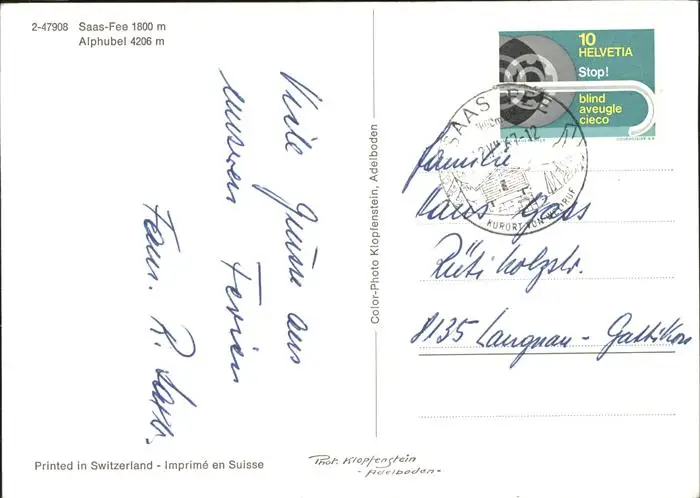 2-47908 Saas-Fee 1800 m
Alphubel 4206 m
Viele Grüsse aus
unseren Ferien
Fam. R.
Printed in Switzerland - Imprimé en Suisse
Color-Photo Klopfenstein, Adelboden
Phot. Klopfenstein
- Adelboden -
10
HELVETIA
Stop!
blind
aveugle
cieco
SAAS-FEE
KURORT VON WELTRUF
Familie
Hans Gass
Rütiholzstr.
8135 Langnau - Gattikon